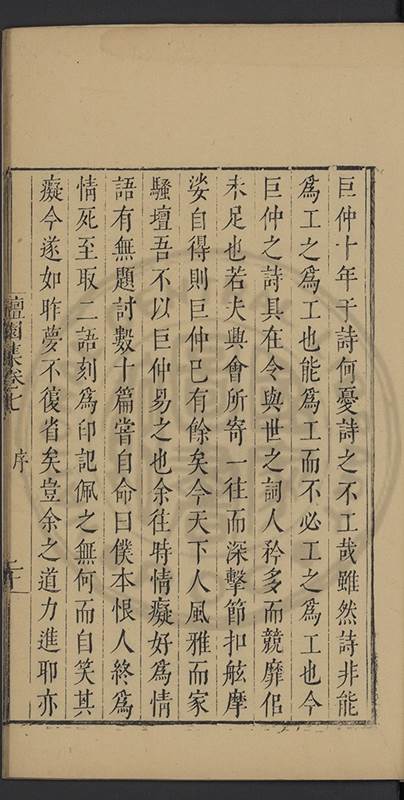 巨仲十年于詩何憂詩之不工哉雖然詩非能
爲工之爲工也能爲工而不必工之爲工也今
巨仲之詩具在令與世之詞人矜多而競靡佀
未足也若夫興會所寄一往而深擊節扣舷摩
娑自得則巨仲已有餘矣今天下人風雅而家
騷壇吾不以巨仲易之也余往時情癡好爲情
語有無題討數十篇嘗自命曰僕本恨人終爲
情死至取二語刻爲印記佩之無何而自笑其
癡今遂如昨夢不復省矣豈余之道力進耶亦
檀園集卷七 序